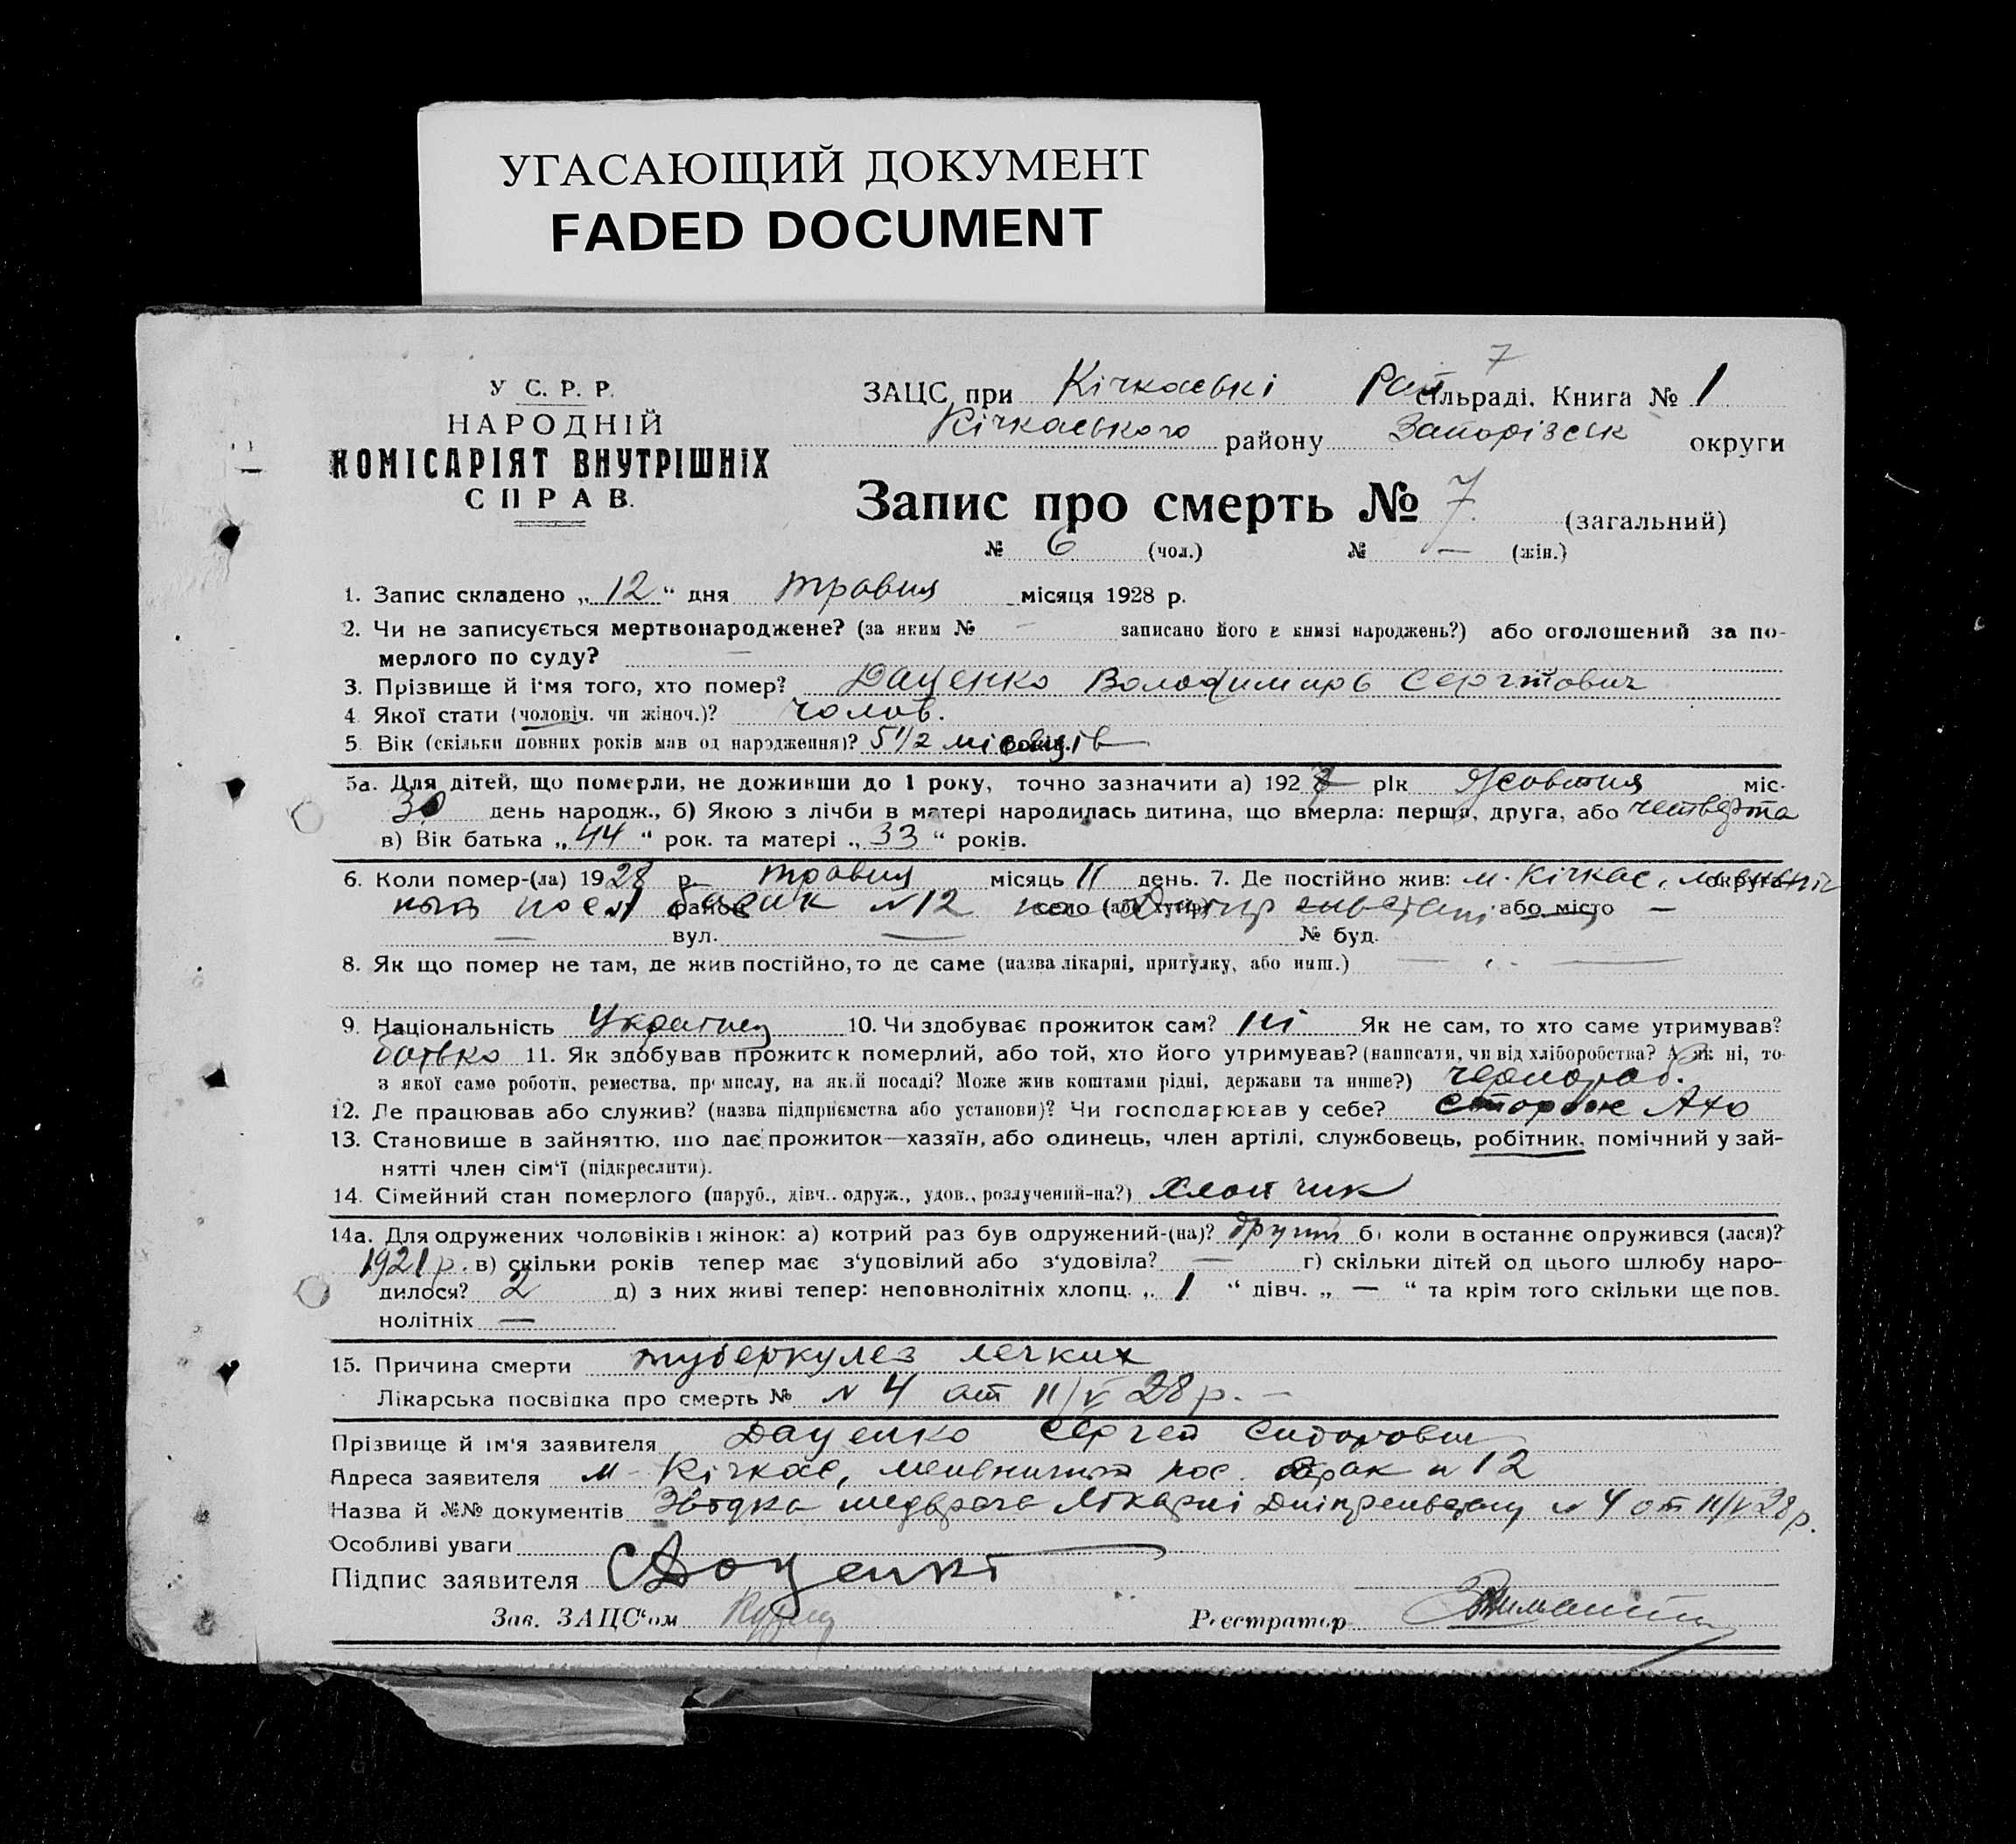 УГАСАЮЩИЙ ДОКУМЕНТ
FADED DOCUMENT
7
У С. Р. Р.
НАРОДНІЙ
КОМІСАРІЯТ ВНУТРІШНІХ
СПРАВ.
ЗАЦС при Кічкаські Рай сільраді. Книга № 1
Кічкаського району Запорізськ округи
Запис про смерть № 7 (загальний)
№ 6 (чол.) № — (жін.)
1. Запис складено „ 12 “ дня травня місяця 1928 р.
2. Чи не записується мертвонароджене? (за яким № – записано його в книзі народжень?) або оголошений за по-
мерлого по суду? —
3. Прізвище й ім'я того, хто помер? Даценко Володимиръ Сергійович
4 Якої стати (чоловіч. чи жіноч.)? чолов.
5. Вік (скільки повних років мав од народження)? 5 1/2 місяців
5а. Для дітей, що померли, не доживши до 1 року, точно зазначити а) 1927 рік Жовтня міс.
30 день народж., б) Якою з лічби в матері народилась дитина, що вмерла: перша, друга, або четверта
в) Вік батька „ 44 “ рок. та матері „ 33 “ років.
6. Коли помер-(ла) 1928 р. травня місяць 11 день. 7. Де постійно жив: м. Кічкас, округа
пос. район барак №12 село (або хутір) або місто —
— вул. — № буд.
8. Як що помер не там, де жив постійно, то де саме (назва лікарні, притулку, або инш.) — —
9. Національність Українец 10. Чи здобуває прожиток сам? ні Як не сам, то хто саме утримував?
батько 11. Як здобував прожиток померлий, або той, хто його утримував? (написати, чи від хліборобства? А як ні, то
з якої само роботи, ремества, промислу, на якій посаді? Може жив коштами рідні, держави та инше?) чернораб.
12. Де працював або служив? (назва підприємства або установи)? Чи господарював у себе? сторож Ахо
13. Становище в зайняттю, що дає прожиток—хазяїн, або одинець, член артілі, службовець, робітник, помічний у зай-
нятті член сім'ї (підкреслити).
14. Сімейний стан померлого (паруб., дівч.. одруж., удов., розлучений-на?) хлопчик
14а. Для одружених чоловіків і жінок: а) котрий раз був одружений-(на)? другий б) коли востаннє одружився (лася)?
1921 р. в) скільки років тепер має з'удовілий або з'удовіла? — г) скільки дітей од цього шлюбу наро-
дилося? 2 д) з них живі тепер: неповнолітніх хлопц. „ 1 “ дівч. „ — “ та крім того скільки ще пов.
нолітніх —
15. Причина смерти туберкулез легких
Лікарська посвідка про смерть № N 4 от 11/V 28 р. —
Прізвище й ім'я заявителя Даценко Сергей Сидорович
Адреса заявителя м. Кічкас, пос. барак N 12
Назва й №№ документів лікарні N 4 от 11/V 28 р.
Особливі уваги
Підпис заявителя СДаценко
Зав. ЗАЦС'ом Реєстратор